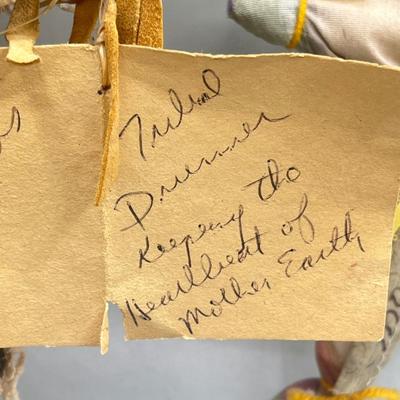 Tribal
Drummer
Keeping the
Heartbeat of
Mother Earth